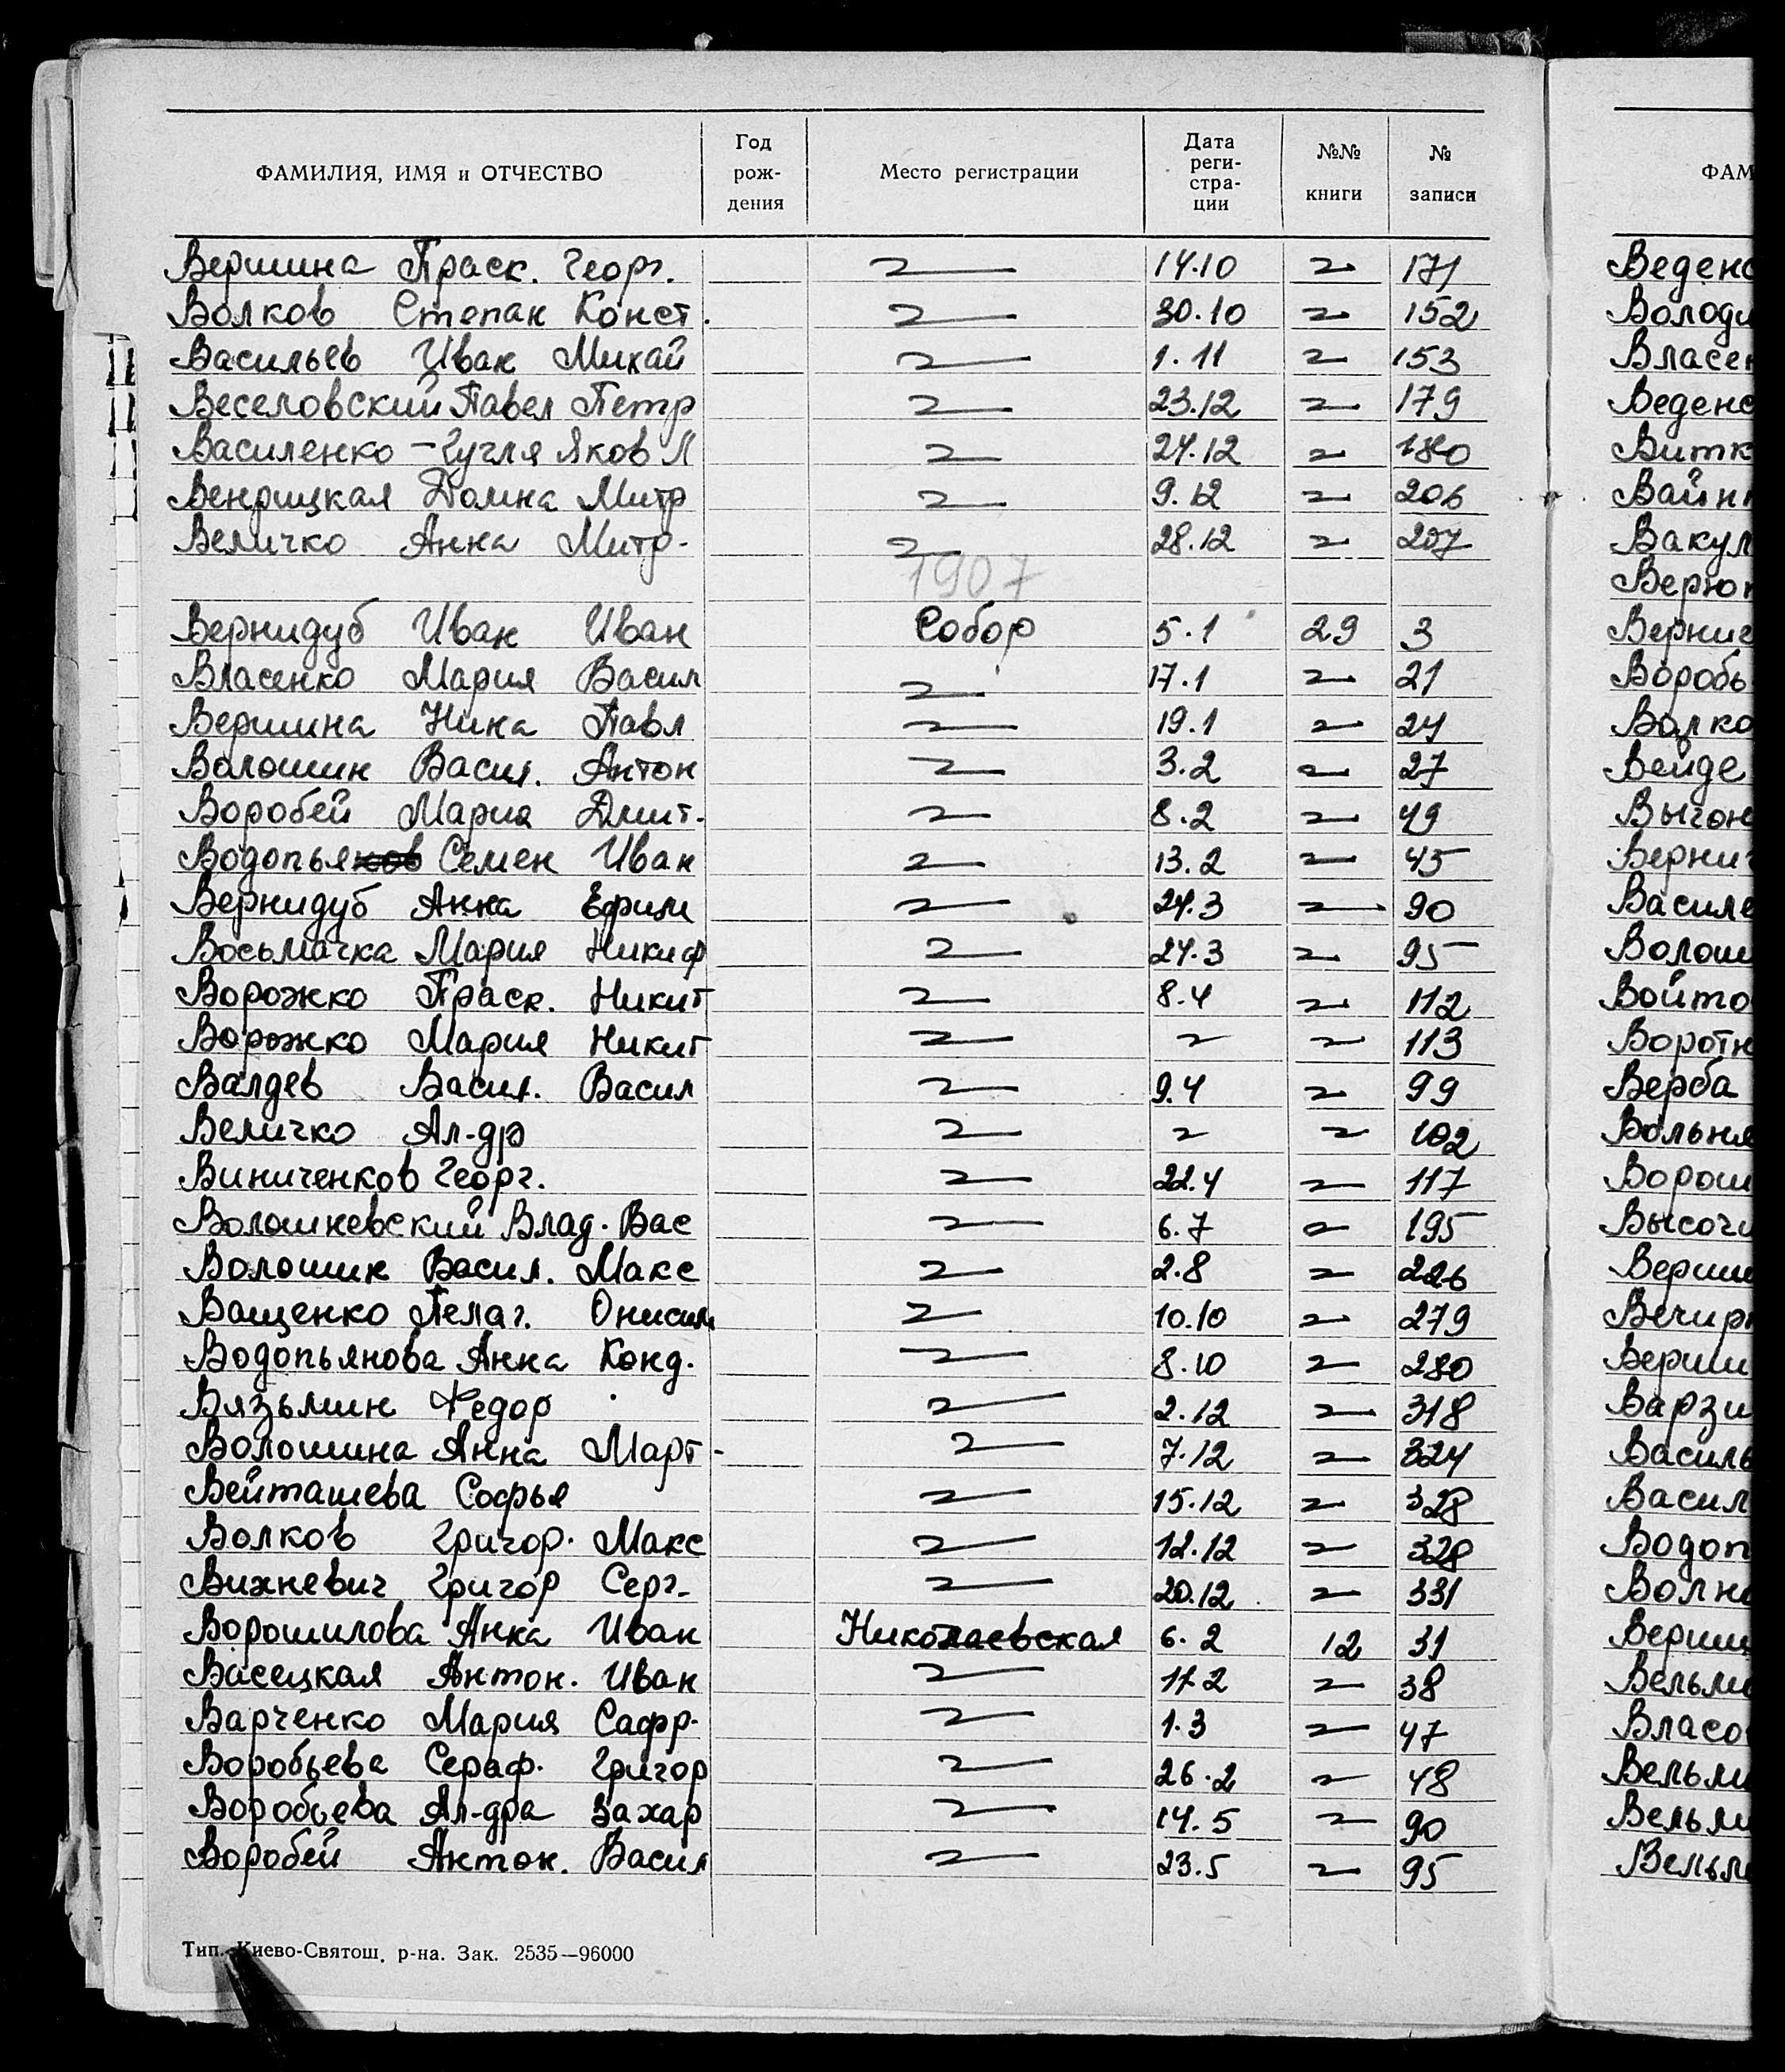 ФАМИЛИЯ, ИМЯ и ОТЧЕСТВО Год рож- дения Место регистрации Дата реги- стра- ции №№ книги № записи ФАМ
Вершина Праск. Георг. 〃 14.10 〃 171 Веденс
Волков Степан Конст. 〃 30.10 〃 152 Володи
Васильев Иван Михай 〃 1.11 〃 153 Власен
Веселовский Павел Петр 〃 23.12 〃 179 Веденс
Василенко-Гугля Яков Л 〃 24.12 〃 180 Витк
Венрицкая Домна Митр 〃 9.12 〃 206 Вайн
Величко Анна Митр. 〃 28.12 〃 207 Вакул
1907 Верю
Вернидуб Иван Иван Собор 5.1 29 3 Верниг
Власенко Мария Васил 〃 17.1 〃 21 Воробь
Вершина Нина Павл 〃 19.1 〃 24 Волко
Волошин Васил. Антон 〃 3.2 〃 27 Вейде
Воробей Мария Дмит. 〃 8.2 〃 49 Выгон
Водопья Семен Иван 〃 13.2 〃 45 Верниг
Вернидуб Анна Ефим 〃 24.3 〃 90 Василе
Восьмачка Мария Никиф 〃 24.3 〃 95 Волош
Ворожко Праск. Никит 〃 8.4 〃 112 Войто
Ворожко Мария Никит 〃 〃 〃 113 Воротн
Валдев Васил. Васил 〃 9.4 〃 99 Верба
Величко Ал-др 〃 〃 〃 102 Вольня
Виниченков Георг. 〃 22.4 〃 117 Ворош
Волошневский Влад. Вас 〃 6.7 〃 195 Высочи
Волошин Васил. Макс 〃 2.8 〃 226 Верши
Ващенко Пелаг. Онисим 〃 10.10 〃 279 Вечир
Водопьянова Анна Конд. 〃 8.10 〃 280 Верши
Вязьмин Федор 〃 2.12 〃 318 Варзи
Волошина Анна Март- 〃 7.12 〃 324 Василь
Вейташева Софья 〃 15.12 〃 328 Васил
Волков Григор. Макс 〃 12.12 〃 328 Водоп
Вихневич Григор Серг- 〃 20.12 〃 331 Волн
Ворошилова Анна Иван Николаевская 6.2 12 31 Верши
Васецкая Антон. Иван 〃 〃 38 Вельми
Варченко Мария Сафр. 〃 1.3 〃 47 Власо
Воробьева Сераф. Григор 〃 26.2 〃 48 Вельми
Воробьева Ал-дра Захар 〃 14.5 〃 90 Вельм
Воробей Антон. Васил 〃 23.5 〃 95 Вельм
Тип. Киево-Святош. р-на. Зак. 2535—96000